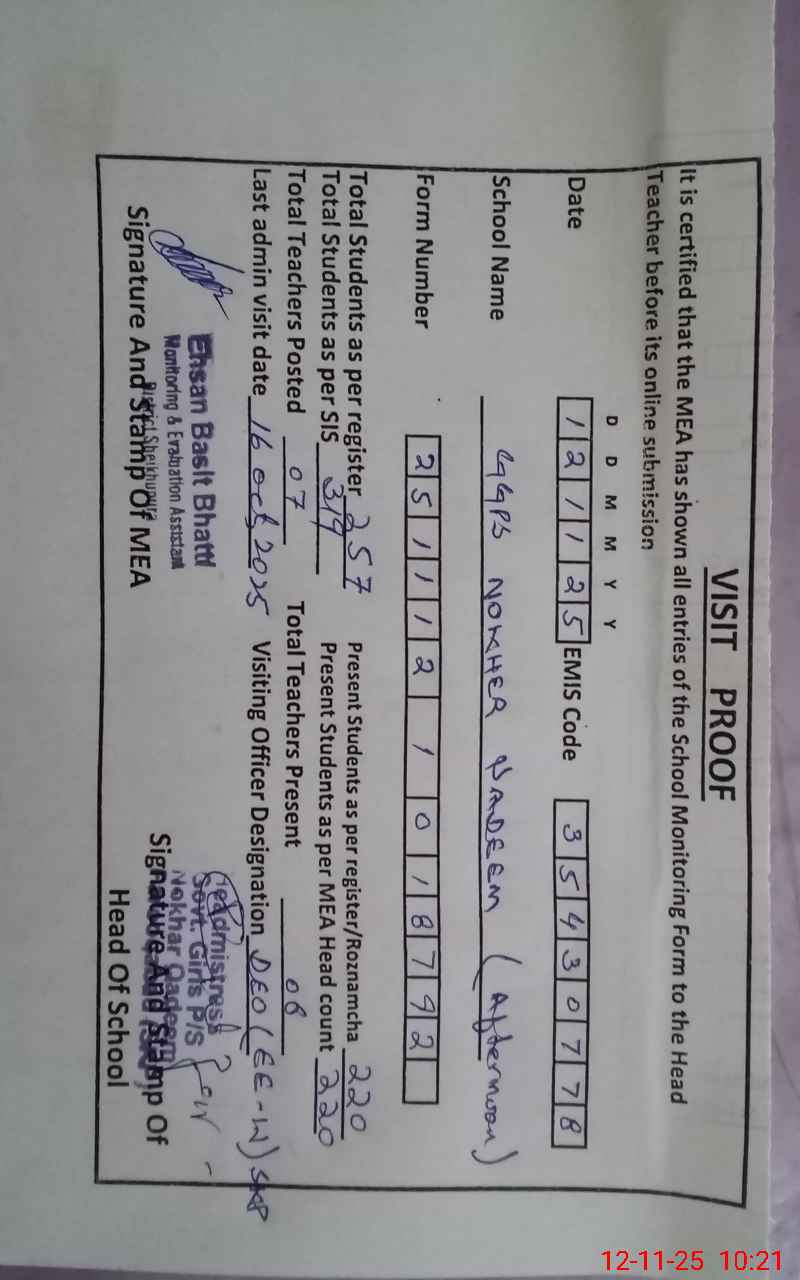 VISIT PROOF
It is certified that the MEA has shown all entries of the School Monitoring Form to the Head
Teacher before its online submission
D D M M Y Y
Date 1 2 1 1 2 5 EMIS Code 3 5 4 3 0 7 7 8
School Name GGPS NOKHER QADEEM (Afternoon)
Form Number 2 5 1 1 1 2 1 0 1 8 7 9 2
Total Students as per register 257 Present Students as per register/Roznamcha 220
Total Students as per SIS 319 Present Students as per MEA Head count 220
Total Teachers Posted 07 Total Teachers Present 06
Last admin visit date 16 Oct, 2025 Visiting Officer Designation DEO (EE-W) SKP
Ehsan Basit Bhatti
Monitoring & Evaluation Assistant
District Sheikhupura
Signature And Stamp Of MEA
Headmistress
Govt. Girls P/S
Nokhar Qadeem
Signature And Stamp Of
Head Of School
12-11-25 10:21